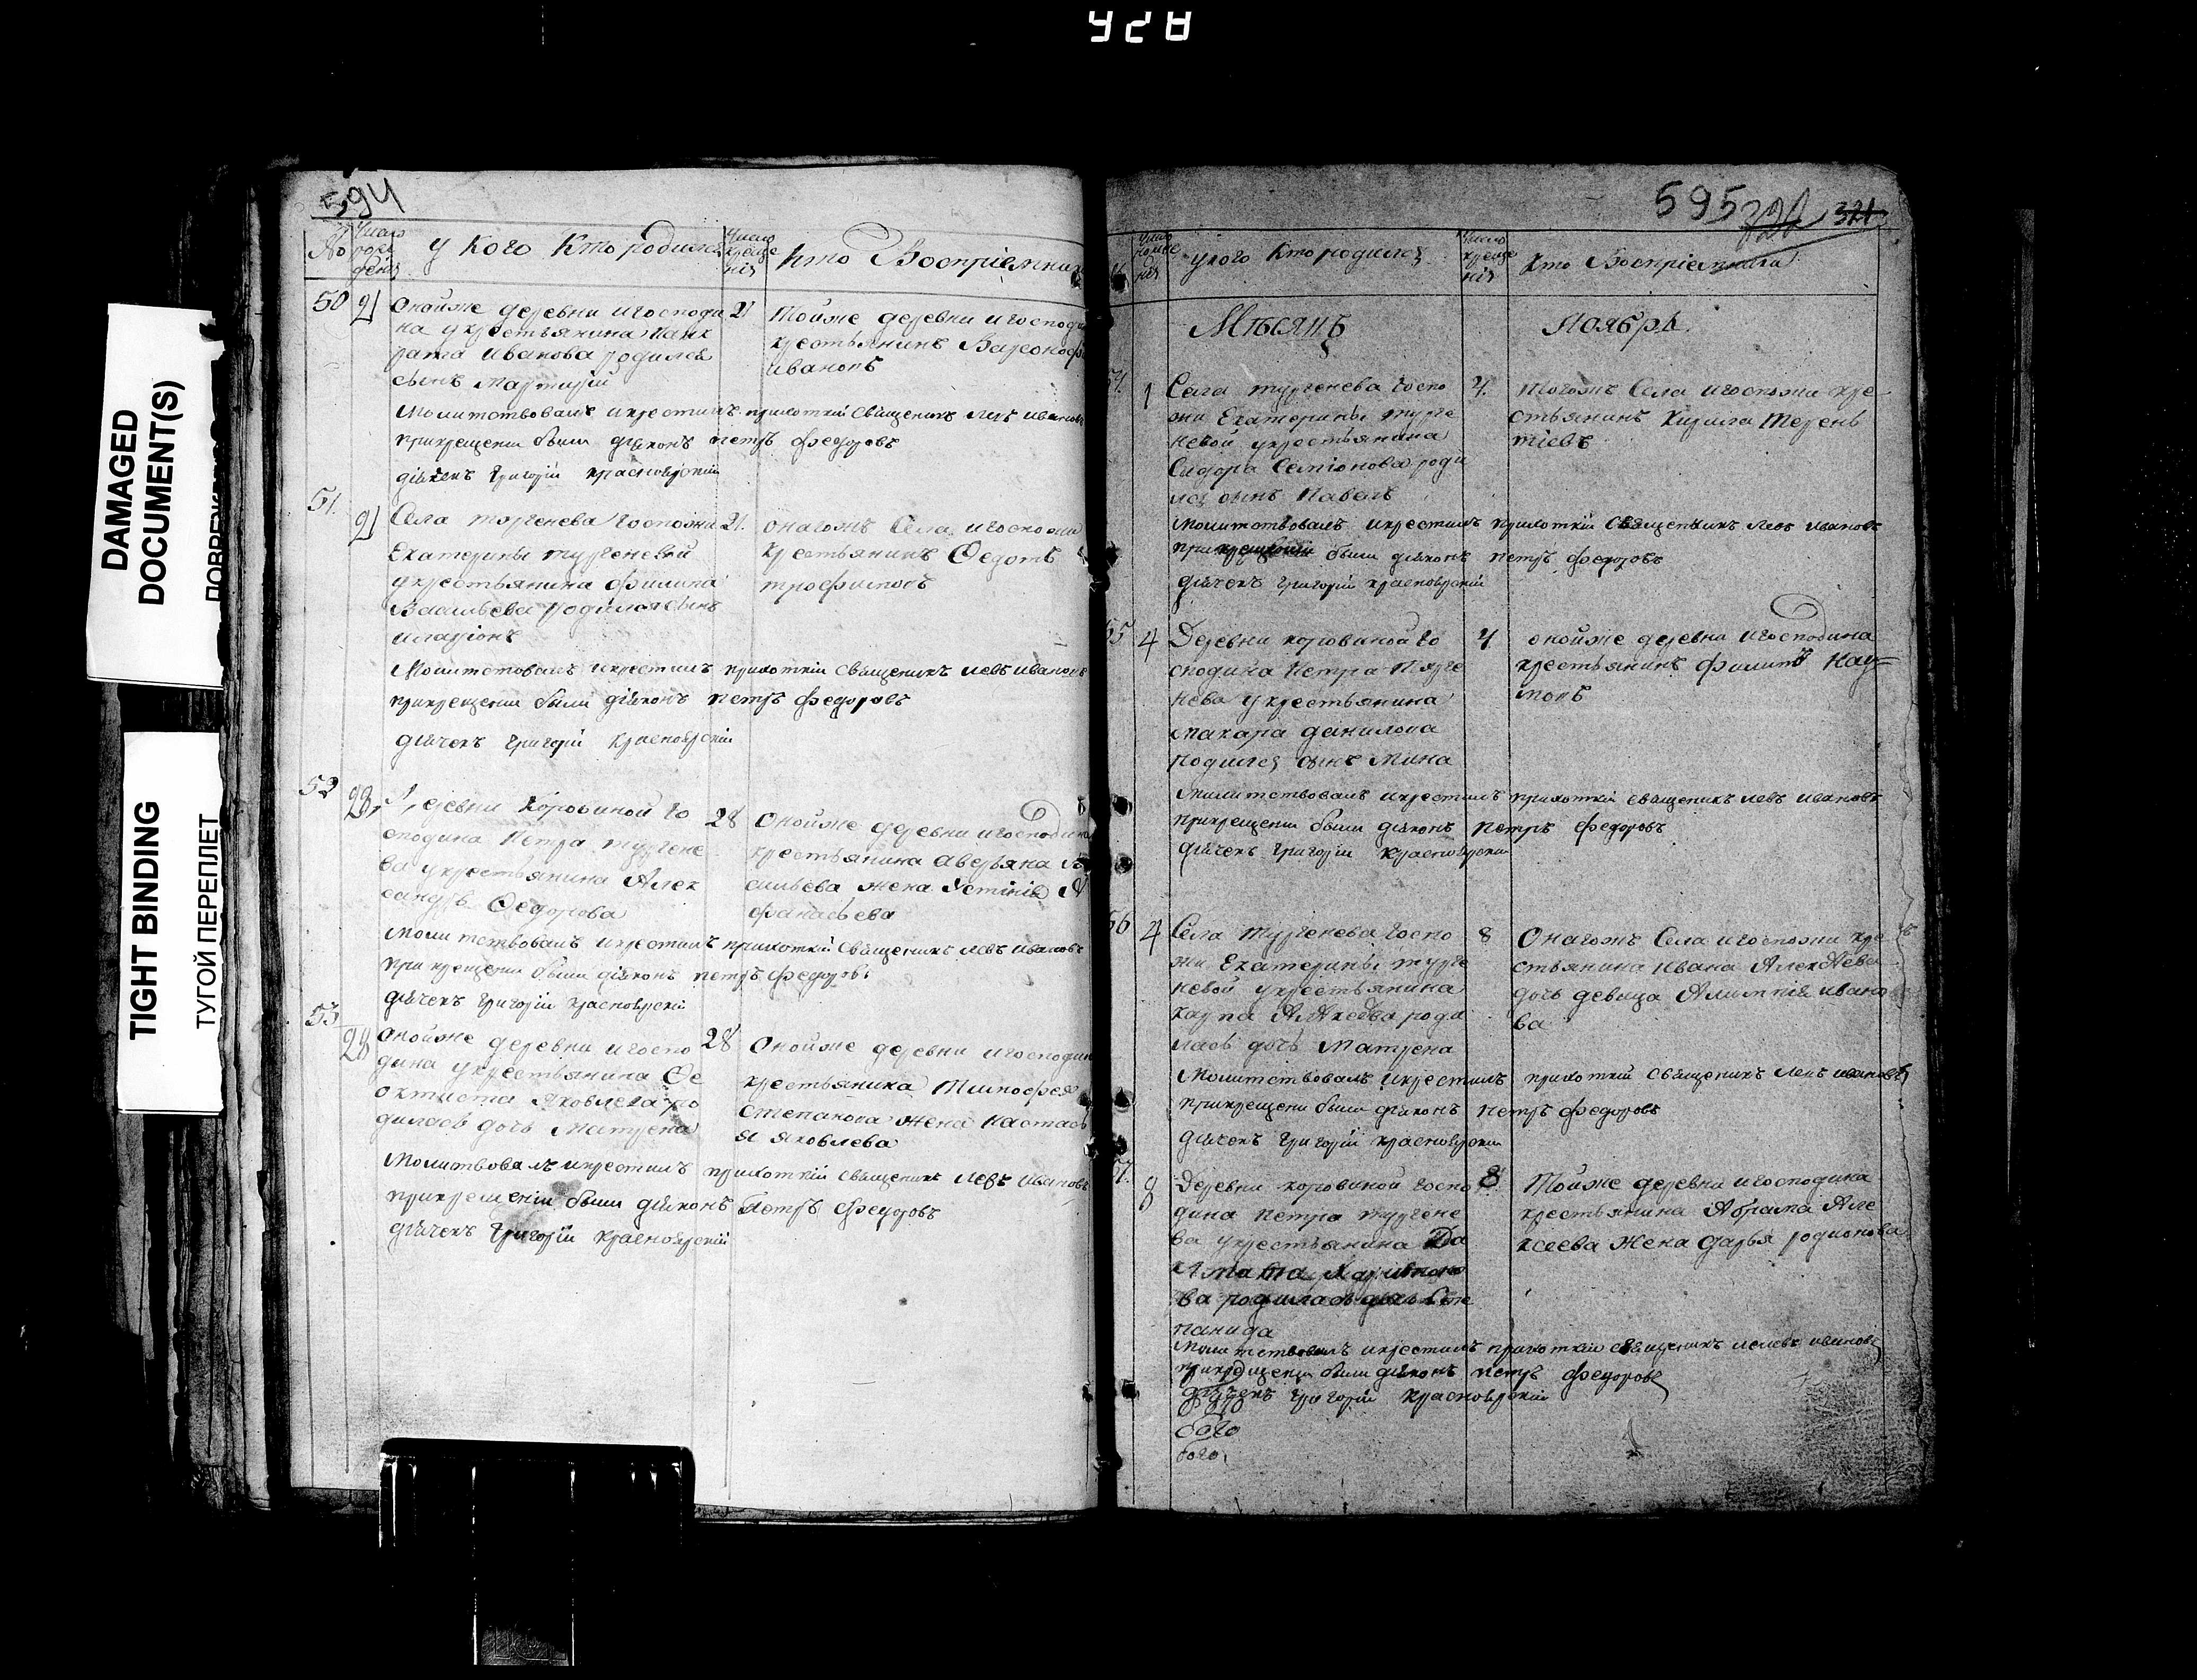 928
DAMAGED
DOCUMENT(S)
TIGHT BINDING
ТУГОЙ ПЕРЕПЛЕТ
594
№
Число
рож
дения
у кого кто родился
Число
креще
нія
кто Воспріемники
50
21
Онойже деревни игосподи
на укрестьянина Панк
рата Иванова родился
сынъ Мартирій
21
Тойже деревни игоспод
крестьянинъ Варсоноф
Ивановъ
Молитствовалъ икрестилъ прихоткій Священикъ Левъ Ивановъ
прикрещени были діяконъ Петръ Федоровъ
діячекъ Григорій Красноярскій
51.
21
Села тургенева госпожи
Екатерины тургеневой
укрестьянина Филипа
Васильева родился сынъ
Иларіонъ
21.
онагожъ Села игоспожи
крестьянинъ Ѳедотъ
трофимовъ
Молитствовалъ икрестилъ прихоткій Священикъ Левъ Ивановъ
прикрещении были діяконъ Петръ Федоровъ
діячекъ Григорій Красноярскій
52
28
Деревни Коровиной го
сподина Петра тургене
ва укрестьянина Алек
сандръ Ѳедорова
28
Онойже деревни игосподина
крестьянина Аверьяна
сильева жена Устинія А
фанасьева
Молитствовалъ икрестилъ прихоткій Священикъ Левъ Ивановъ
при крещении были діяконъ Петръ Федоровъ
діячекъ Григорій Красноярскій
53
28
Онойже деревни игоспо
дина укрестьянина Ѳе
октиста Яковлева ро
дилась дочь Матрена
28
Онойже деревни игосподин
крестьянина Тимофея
Степанова жена Настась
я Яковлева
Молитвовалъ икрестилъ прихоткій Священикъ Левъ Ивановъ
прикрещеніи были діяконъ Петръ Федоровъ
діячекъ Григорій Красноярскій
595
321
укого кто родился
Число
креще
нія
Кто Воспріемники
Мѣсяцъ Ноябрь
54.
1
Села тургенева госпо
жи Екатерины турге
невой укрестьянина
Сидора Семіонова роди
лся сынъ Павелъ
4.
Тогожъ Села игоспожи кре
стьянинъ Кирила Терень
тіевъ
Молитствовалъ икрестилъ прихоткій Священикъ Левъ Ивановъ
прикрещении были діяконъ Петръ Федоровъ
діячекъ Григорій Красноярскій
55
4
Деревни Коровиной го
сподина Петра Турге
нева укрестьянина
Макара Данилова
родился сынъ Мина
4
онойже деревни игосподина
крестьянинъ Филипъ Нау=
мовъ
Молитствовалъ икрестилъ прихоткій Священикъ Левъ Ивановъ
прикрещении были діяконъ Петръ Федоровъ
діячекъ Григорій Красноярскій
56
4
Села Тургенева госпо
жи Екатерины турге
невой укрестьянина
Карпа роди
лась дочь Матрена
8
Онагожъ Села игоспожи кре
стьянина Ивана Алекѣева
дочь девица Олимпія Ивано
ва
Молитствовалъ икрестилъ прихоткій Священикъ Левъ Ивановъ
прикрещени были діяконъ Петръ Федоровъ
діячекъ Григорій Красноярскій
57.
8
Деревни коровиной госпо
дина Петра тургене
ва укрестьянина
ва родилась дочь Сте
панида
8
Тойже деревни игосподина
крестьянина Абрама Але
ксеева жена Дарья родионова
Молитствовалъ икрестилъ прихоткій Священикъ Левъ Ивановъ
прикрещении были діяконъ Петръ Федоровъ
діячекъ Григорій Красноярскій